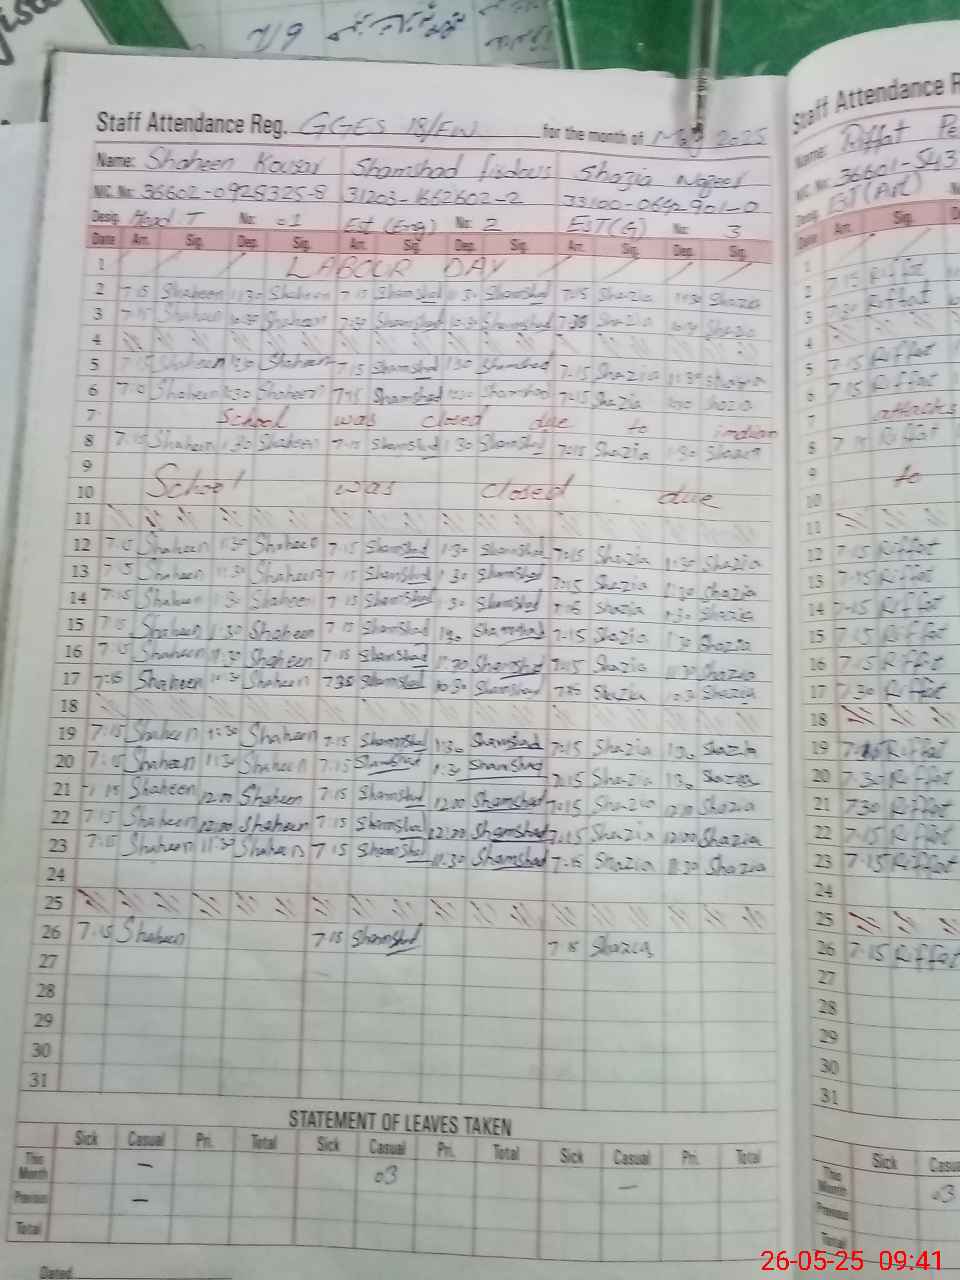 Staff Attendance Reg. GGES 18/EW for the month of May 2025
Name: Shaheen Kousar Shamshad firdous Shazia Nazeer
NIC. No: 36602-0925325-8 31203-1662602-2 33100-0642901-0
Desig. Head T No: 01 Est (Eng) No: 2 EST(G) No: 3
Date Arr. Sig. Dep. Sig. Arr. Sig. Dep. Sig. Arr. Sig. Dep. Sig.
1 LABOUR DAY
2 7:15 Shaheen 1:30 Shaheen 7:15 Shamshad 1:30 Shamshad 7:15 Shazia 1:30 Shazia
3 7:15 Shaheen 10:30 Shaheen 7:30 Shamshad 10:30 Shamshad 7:35 Shazia 10:30 Shazia
4
5 7:15 Shaheen 1:30 Shaheen 7:15 Shamshad 1:30 Shamshad 7:15 Shazia 1:30 Shazia
6 Shaheen 1:30 Shaheen 7:15 Shamshad 1:30 Shamshad 7:15 Shazia 1:30 Shazia
7 School was closed due to indian
8 7:15 Shaheen 1:30 Shaheen 7:15 Shamshad 1:30 Shamshad 7:15 Shazia 1:30 Shazia
9
10 School was closed due
11
12 7:15 Shaheen 1:30 Shaheen 7:15 Shamshad 1:30 Shamshad 7:15 Shazia 1:30 Shazia
13 7:15 Shaheen 1:30 Shaheen 7:15 Shamshad 1:30 Shamshad 7:15 Shazia 1:30 Shazia
14 7:15 Shaheen 1:30 Shaheen 7:15 Shamshad 1:30 Shamshad 7:15 Shazia 1:30 Shazia
15 7:15 Shaheen 1:30 Shaheen 7:15 Shamshad 1:30 Shamshad 7:15 Shazia 1:30 Shazia
16 7:15 Shaheen 11:30 Shaheen 7:15 Shamshad 11:30 Shamshad 7:15 Shazia 11:30 Shazia
17 7:15 Shaheen 10:30 Shaheen 7:35 Shamshad 10:30 Shamshad 7:15 Shazia 10:30 Shazia
18
19 7:15 Shaheen 1:30 Shaheen 7:15 Shamshad 1:30 Shamshad 7:15 Shazia 1:30 Shazia
20 7:15 Shaheen 1:30 Shaheen 7:15 Shamshad 1:30 Shamshad 7:15 Shazia 1:30 Shazia
21 7:15 Shaheen 12:00 Shaheen 7:15 Shamshad 12:00 Shamshad 7:15 Shazia 12:00 Shazia
22 7:15 Shaheen 12:00 Shaheen 7:15 Shamshad 12:00 Shamshad 7:15 Shazia 12:00 Shazia
23 7:15 Shaheen 11:30 Shaheen 7:15 Shamshad 11:30 Shamshad 7:15 Shazia 11:30 Shazia
24
25
26 7:15 Shaheen 7:15 Shamshad 7:15 Shazia
27
28
29
30
31
STATEMENT OF LEAVES TAKEN
Sick Casual Pri. Total Sick Casual Pri. Total Sick Casual Pri. Total
This Month — 03 —
Previous —
Total
Dated
Staff Attendance R
Name: Riffat Pe
NIC. No: 36601-543
Desig. EST (Art)
Date Arr. Sig.
1
2 7:15 Riffat
3 7:30 Riffat
4
5 7:15 Riffat
6 7:15 Riffat
7 attacks
8 7:15 Riffat
9 to
10
11
12 7:15 Riffat
13 7:15 Riffat
14 7:15 Riffat
15 7:15 Riffat
16 7:15 Riffat
17 7:30 Riffat
18
19 7:15 Riffat
20 7:30 Riffat
21 7:30 Riffat
22 7:15 Riffat
23 7:15 Riffat
24
25
26 7:15 Riffat
27
28
29
30
31
Sick Casu
This Month 03
Previous
Total
26-05-25 09:41